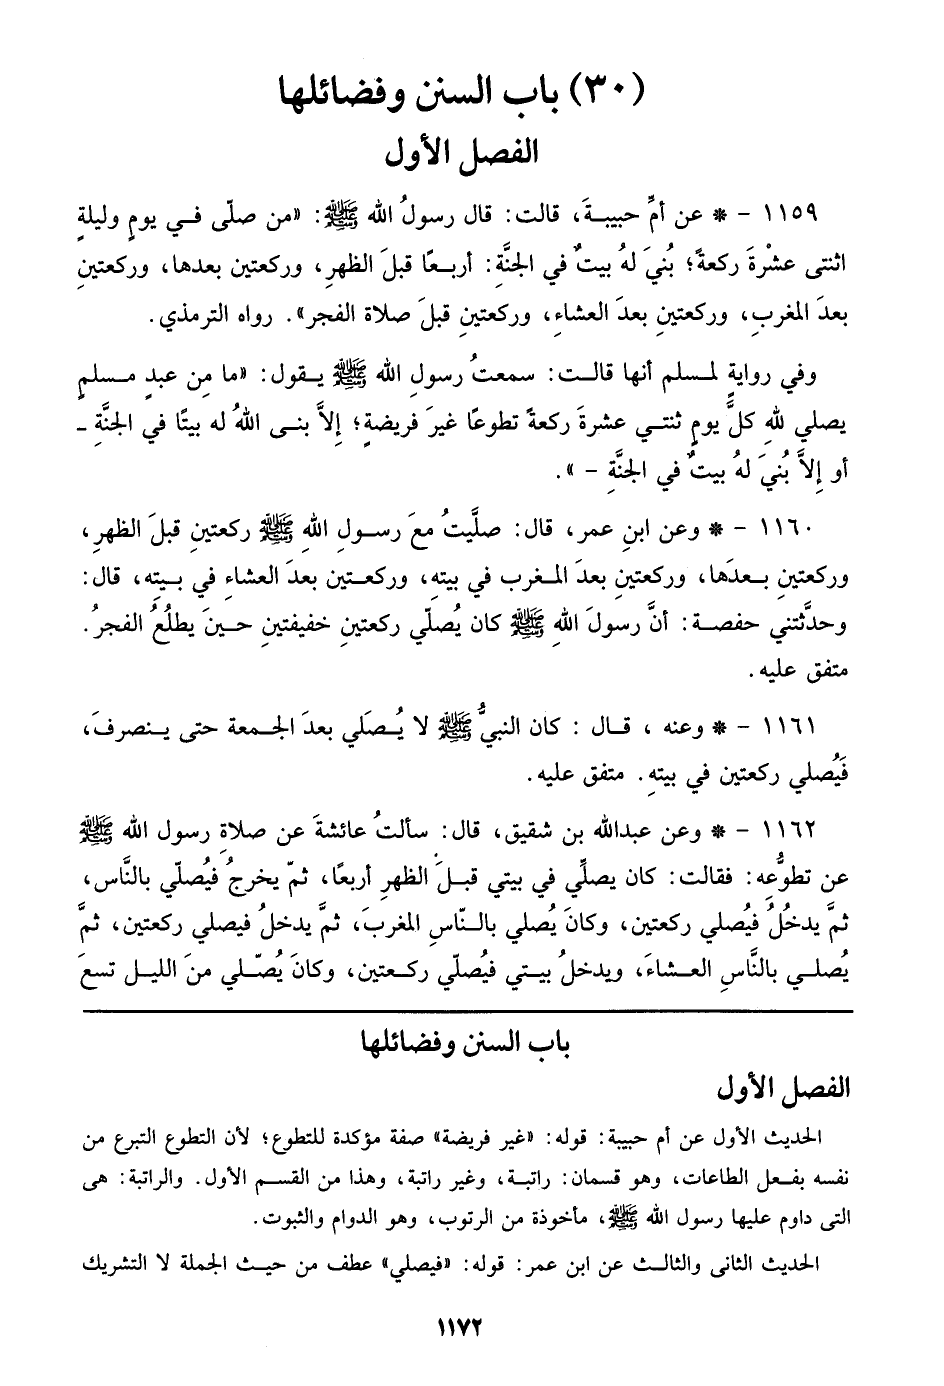 (٣٠) باب السنن وفضائلها
الفصل الأول
١١٥٩ - * عن أمِّ حبيبةَ، قالت: قال رسولُ الله ﷺ: «من صلّى في يومٍ وليلةٍ
اثنتى عشْرةَ ركعةً؛ بُنيَ لهُ بيتٌ في الجنَّةِ: أربعًا قبلَ الظهرِ، وركعتين بعدها، وركعتينِ
بعدَ المغربِ، وركعتينِ بعدَ العشاءِ، وركعتينِ قبلَ صلاة الفجر». رواه الترمذي.
وفي روايةٍ لمسلم أنها قالت: سمعتُ رسولِ الله ﷺ يقول: «ما مِن عبدٍ مسلمٍ
يصلي للهِ كلَّ يومٍ ثنتي عشرةَ ركعةً تطوعًا غيرَ فريضةٍ؛ إلاَّ بنى اللهُ له بيتًا في الجنَّةِ -
أو إلاَّ بُنيَ لهُ بيتٌ في الجنَّةِ - ».
١١٦٠ - * وعن ابنِ عمر، قال: صلَّيتُ معَ رسولِ اللهِ ﷺ ركعتينِ قبلَ الظهرِ،
وركعتينِ بعدَها، وركعتينِ بعدَ المغرب في بيتهِ، وركعتين بعدَ العشاءِ في بيتِه، قال:
وحدَّثتني حفصة: أنَّ رسولَ اللهِ ﷺ كان يُصلّي ركعتينِ خفيفتينِ حينَ يطلُعُ الفجرُ.
متفق عليه.
١١٦١ - * وعنه ، قال : كان النبيُّ ﷺ لا يُصَلي بعدَ الجمعة حتى ينصرفَ،
فَيُصلي ركعتين في بيتهِ. متفق عليه.
١١٦٢ - * وعن عبدالله بن شقيق، قال: سألتُ عائشةَ عن صلاةِ رسول الله ﷺ
عن تطوُّعِه: فقالت: كان يصلِّي في بيتي قبلَ الظهرِ أربعًا، ثمّ يخرجُ فيُصلّي بالنَّاس،
ثمَّ يدخُلُ فيُصلي ركعتين، وكانَ يُصلي بالنّاسِ المغربَ، ثمَّ يدخلُ فيصلي ركعتين، ثمَّ
يُصلي بالنَّاسِ العشاءَ، ويدخلُ بيتي فيُصلّي ركعتين، وكانَ يُصّلي منَ الليل تسعَ
باب السنن وفضائلها
الفصل الأول
الحديث الأول عن أم حبيبة: قوله: «غير فريضة» صفة مؤكدة للتطوع؛ لأن التطوع التبرع من
نفسه بفعل الطاعات، وهو قسمان: راتبة، وغير راتبة، وهذا من القسم الأول. والراتبة: هى
التى داوم عليها رسول الله ﷺ، مأخوذة من الرتوب، وهو الدوام والثبوت.
الحديث الثانى والثالث عن ابن عمر: قوله: «فيصلي» عطف من حيث الجملة لا التشريك
١١٧٢